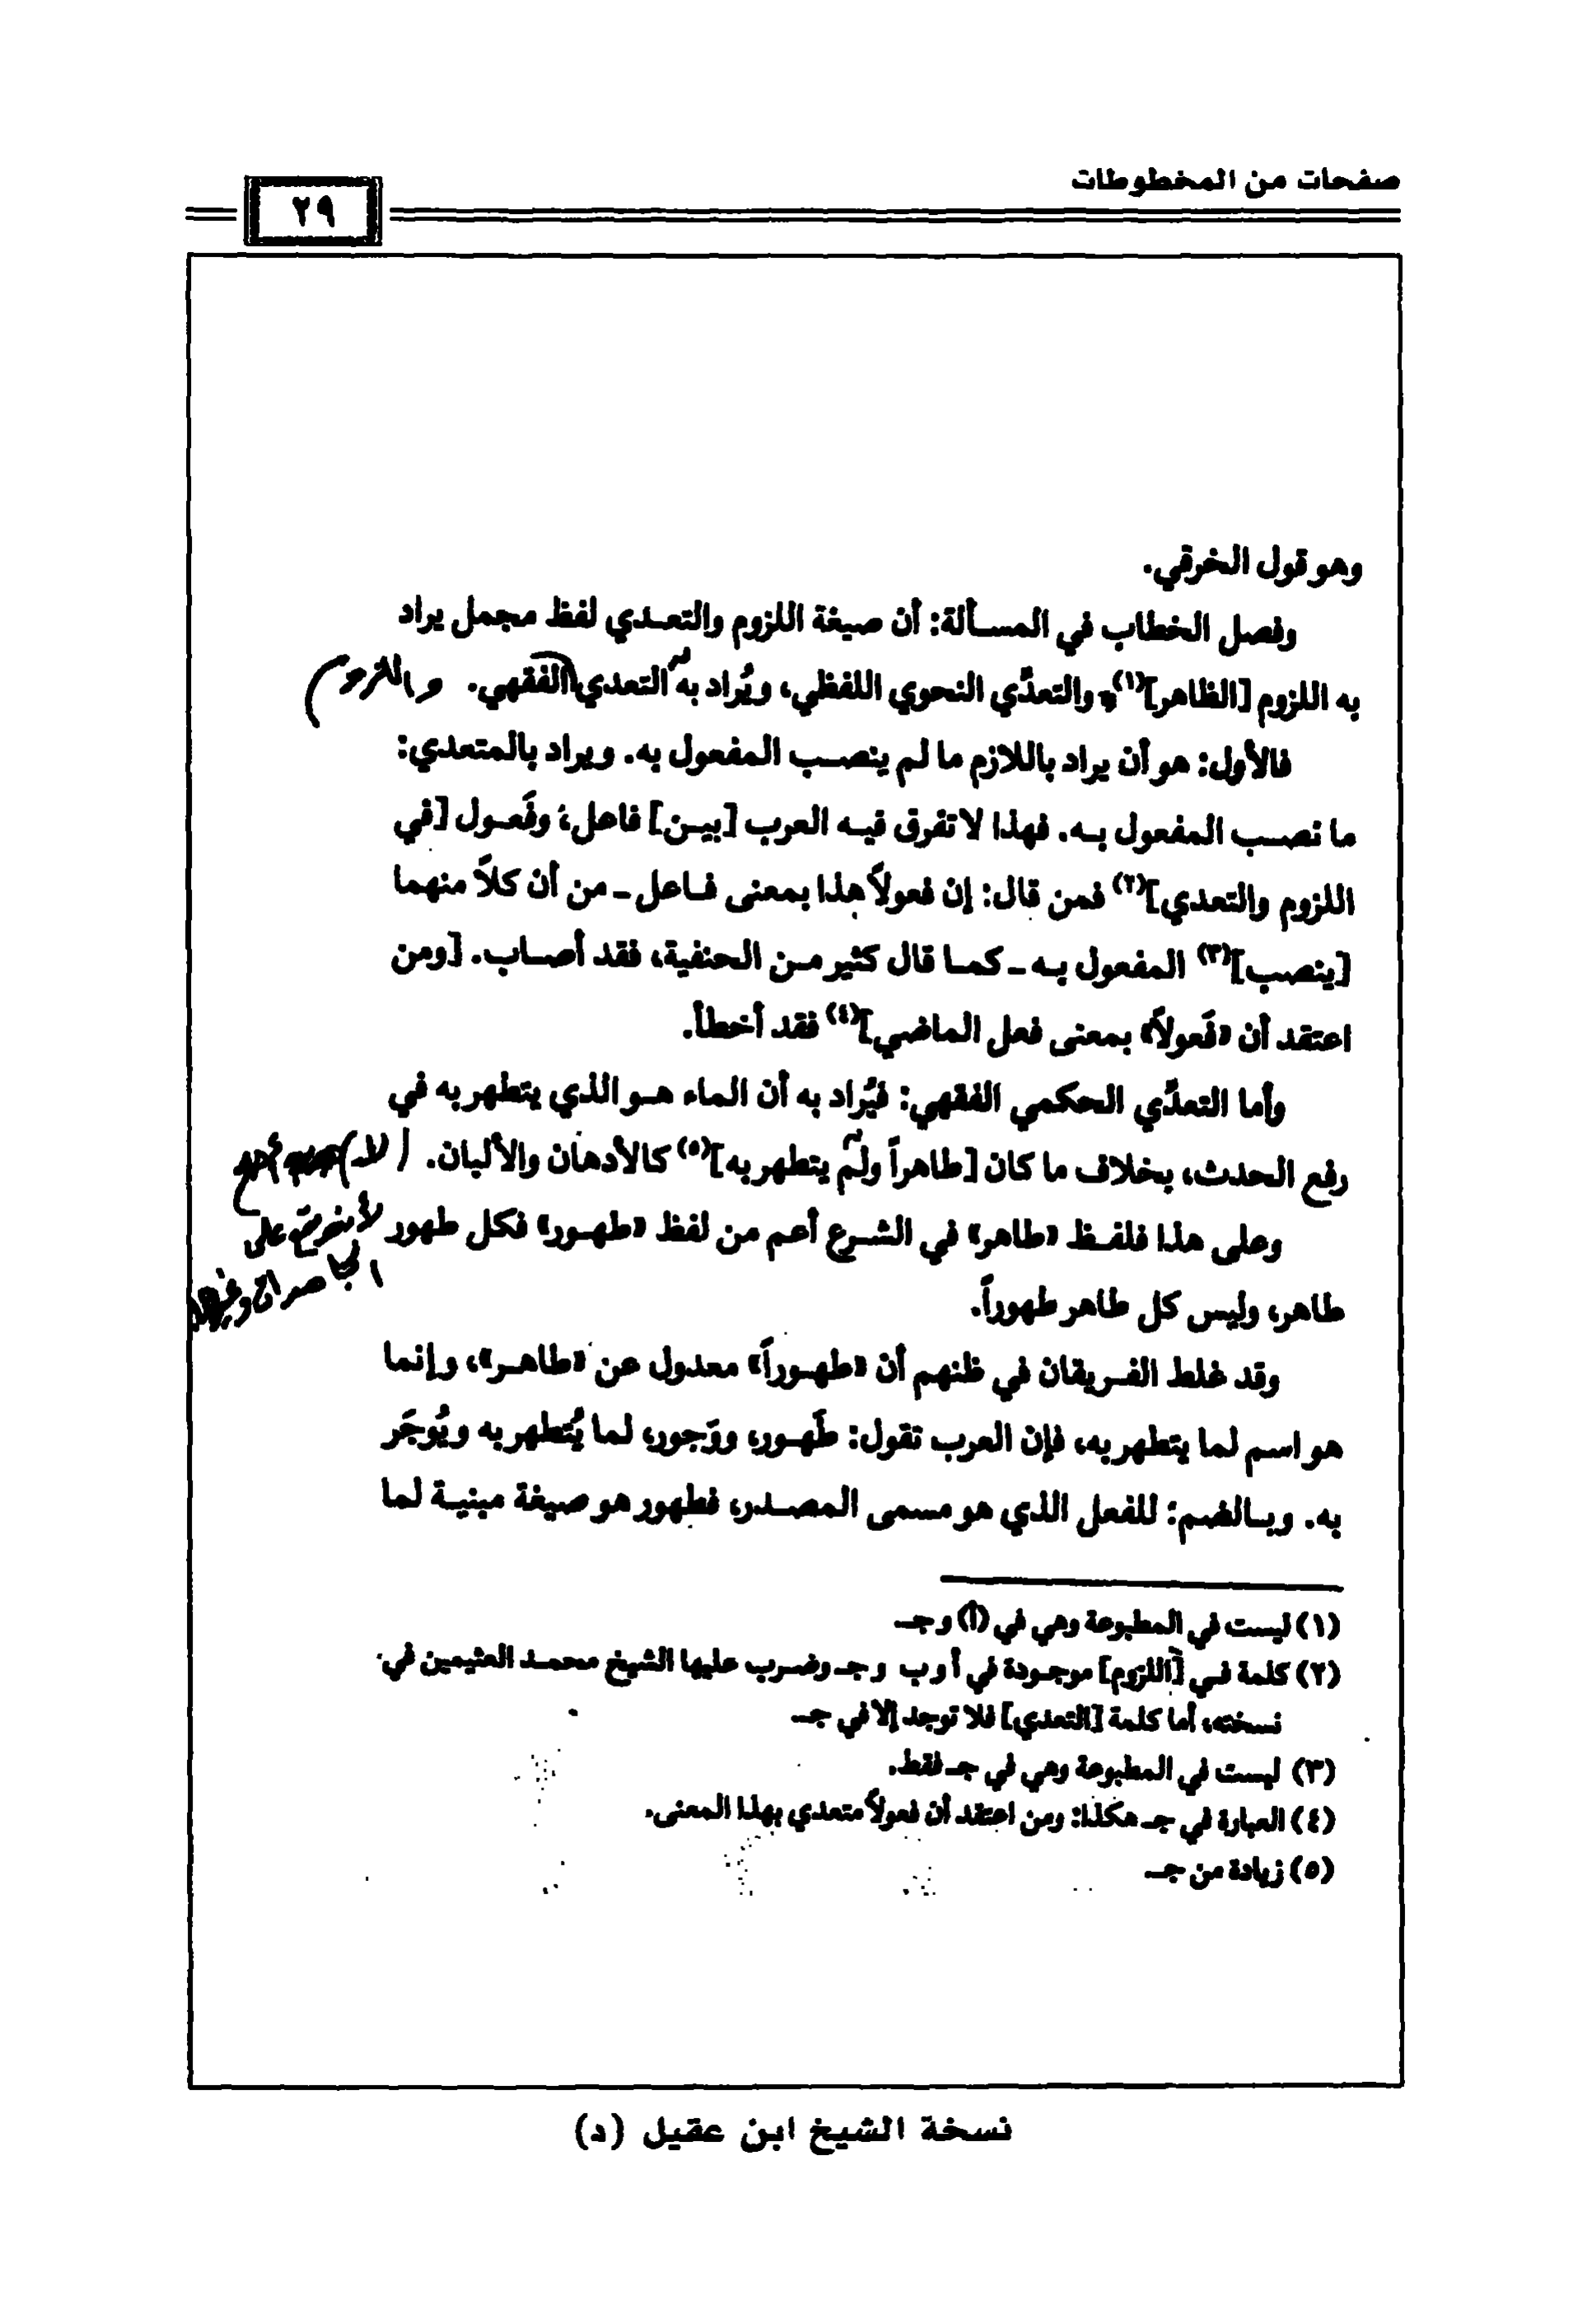 صفحات من المخطوطات
٢٩
وهو قول الخرقي.
وفصل الخطاب في المسألة: أن صيغة اللزوم والتعدي لفظ مجمل يراد
به اللزوم [الظاهر](١)، والتعدِّي النحوي اللفظي، ويُراد به التعدي الفقهي. واللزوم
فالأول: هو أن يراد باللازم ما لم ينصب المفعول به. ويراد بالمتعدي:
ما نصب المفعول به. فهذا لا تفرق فيه العرب [بين] فاعل، وفَعول [في
اللزوم والتعدي](٢) فمن قال: إن فعولاً هذا بمعنى فاعل ـ من أن كلاً منهما
[ينصب](٣) المفعول به ـ كما قال كثير من الحنفية، فقد أصاب. [ومن
اعتقد أن «فَعولاً» بمعنى فعل الماضي](٤) فقد أخطأ.
وأما التعدِّي الحكمي الفقهي: فيُراد به أن الماء هو الذي يتطهر به في
رفع الحدث، بخلاف ما كان [طاهراً ولم يتطهر به](٥) كالأدهان والألبان.
وعلى هذا فلفظ «طاهر» في الشرع أعم من لفظ «طهور» فكل طهور
على
طاهر، وليس كل طاهر طهوراً.
وقد غلط الفريقان في ظنهم أن «طهوراً» معدول عن «طاهر»، وإنما
هو اسم لما يتطهر به، فإن العرب تقول: طَهور، ووَجور، لما يُتطهر به ويُوجَر
به. وبالضم: للفعل الذي هو مسمى المصدر، فطهور هو صيغة مبنية لما
(١) ليست في المطبوعة وهي في (أ) و جـ.
(٢) كلمة في [اللزوم] موجودة في أ و ب و جـ وضرب عليها الشيخ محمد العثيمين في
نسخته، أما كلمة [التعدي] فلا توجد إلا في جـ.
(٣) ليست في المطبوعة وهي في جـ فقط.
(٤) العبارة في جـ هكذا: ومن اعتقد أن فعولاً متعدي بهذا المعنى.
(٥) زيادة من جـ.
نسخة الشيخ ابن عقيل (د)